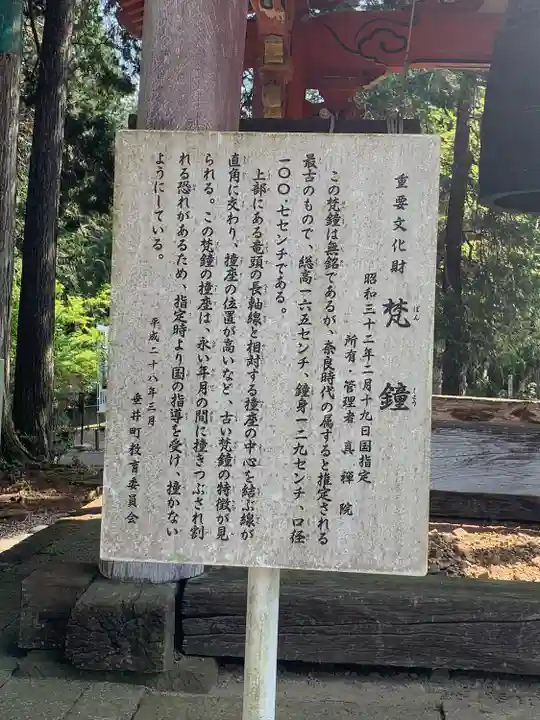 重要文化財
梵鐘
ぼん
しょう
昭和三十二年二月十九日国指定
所有・管理者 真禅院
この梵鐘は無銘であるが、奈良時代の属すると推定される
最古のもので、総高一六五センチ、鐘身一二九センチ、口径
一〇〇．七センチである。
上部にある竜頭の長軸線と相対する撞座の中心を結ぶ線が
直角に交わり、撞座の位置が高いなど、古い梵鐘の特徴が見
られる。この梵鐘の撞座は、永い年月の間に撞きつぶされ割
れる恐れがあるため、指定時より国の指導を受け、撞かない
ようにしている。
平成二十八年三月
垂井町教育委員会